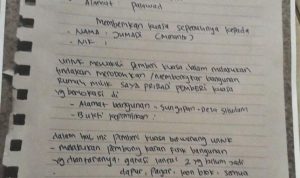 Alamat
Memberikan kuasa sepenuhnya kepada
- NAMA : JUMADI (Mananto)
- NIK :
untuk mewakili pemberi kuasa dalam melakukan
tindakan merobohkan / membongkar bangunan
rumah milik saya pribadi pemberi kuasa
yg berlokasi di
- Alamat bangunan - Sungapan - Desa
- Bukti kepemilikan :
dalam hal ini pemberi kuasa berwenang untuk
- melakukan pembongkaran fisik bangunan
yg diantaranya : gardu lantai 2 yg belum jadi
dapur, pagar, kon blok, semua